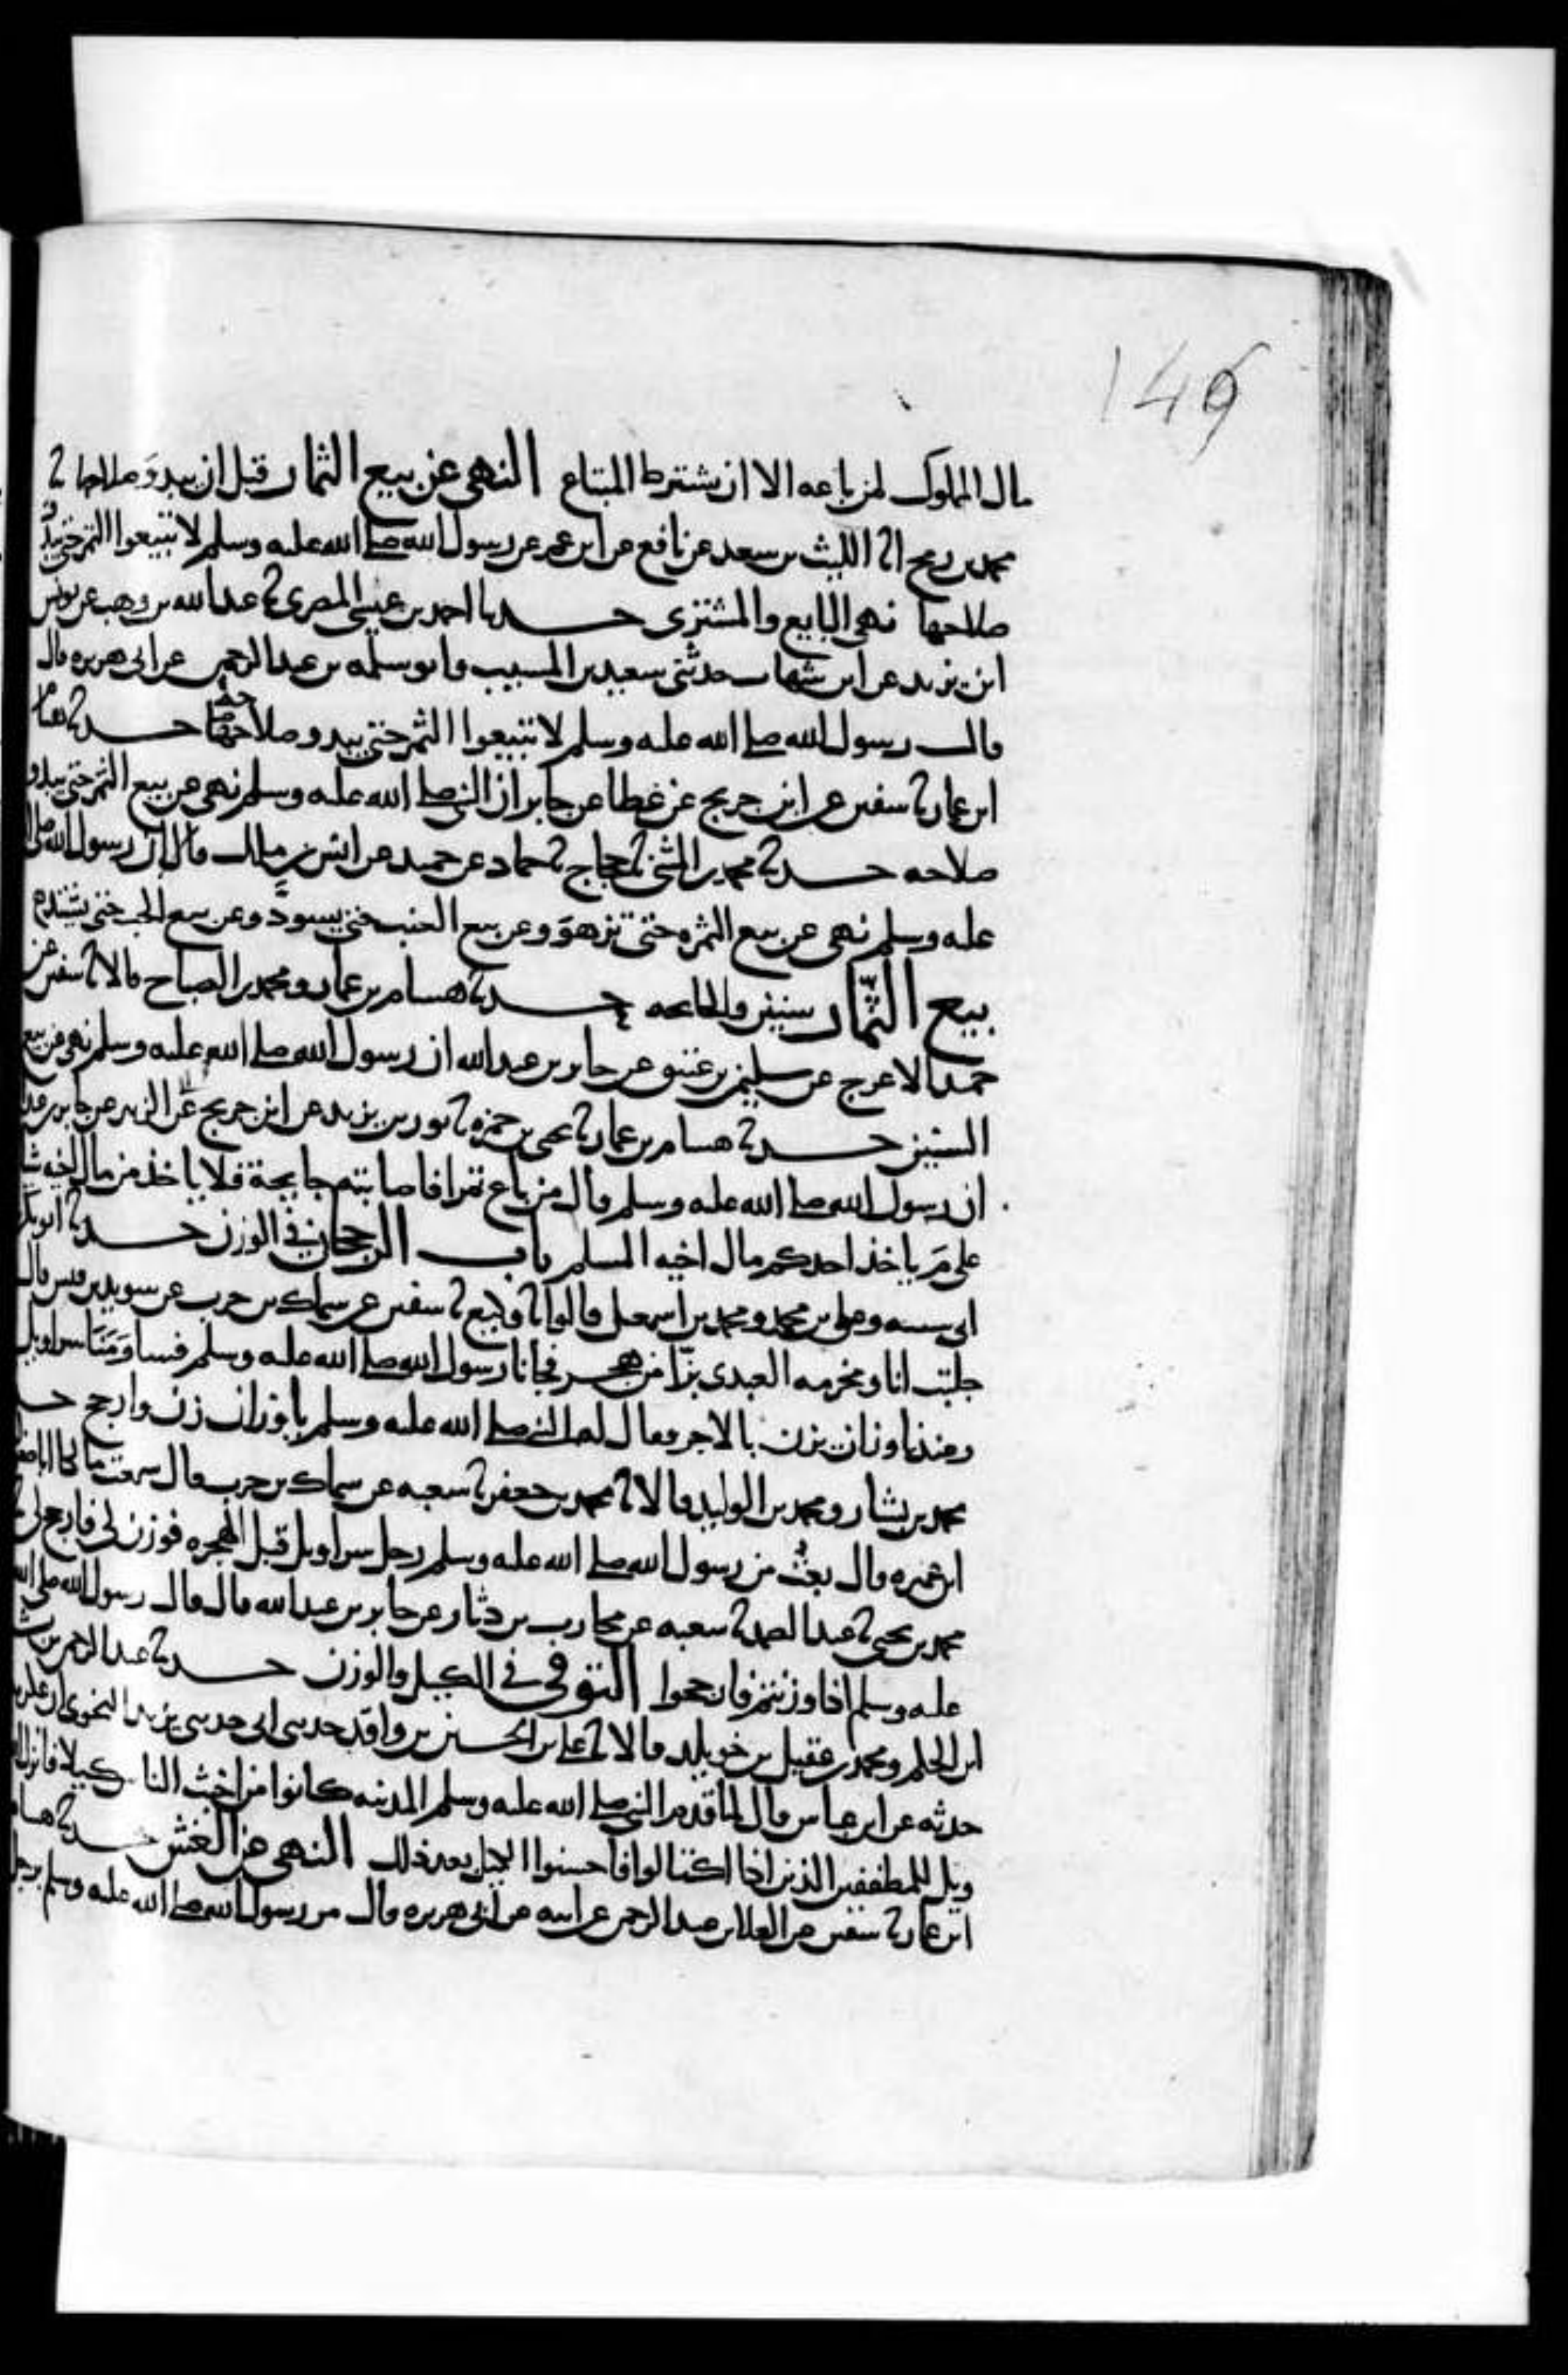 149
مال المملوك لمن باعه الا ان يشترط المبتاع النهى عن بيع الثمار قبل ان يبدو صلاحها ثا
محمد بن رمح انا الليث بن سعد عن نافع عن ابن عمر عن رسول الله صلى الله عليه وسلم لا تبيعوا الثمر حتى يبدو
صلاحها نهى البايع والمشترى حدثنا احمد بن عيسى المصرى ثا عبد الله بن وهب عن يونس
ابن يزيد عن ابن شهاب حدثنى سعيد بن المسيب وابو سلمه بن عبد الرحمن عن ابى هريره قال
قال رسول الله صلى الله عليه وسلم لا تبيعوا الثمر حتى يبدو صلاحها حدثا هشام
ابن عمار ثا سفين عن ابن جريج عن عطا عن جابر ان النبى صلى الله عليه وسلم نهى عن بيع الثمر حتى يبدو
صلاحه حدثا محمد بن المثنى ثا حجاج ثا حماد عن حميد عن انس بن مالك قال ان رسول الله صلى
عليه وسلم نهى عن بيع الثمره حتى تزهو وعن بيع العنب حتى يسود وعن بيع الحب حتى يشتد
بيع الثمار سنين والجائحه حدثا هشام بن عمار ومحمد بن الصباح قالا ثا سفين عن
حميد الاعرج عن سليمن بن عتيق عن جابر بن عبد الله ان رسول الله صلى الله عليه وسلم نهى عن بيع
السنين حدثا هشام بن عمار ثا يحيى بن حمزه ثا ثور بن يزيد عن ابن جريج عن ابى الزبير عن جابر بن عبد
ان رسول الله صلى الله عليه وسلم قال من باع ثمرا فاصابته جايحة فلا ياخذ من مال اخيه شيا
على مَ ياخذ احدكم مال اخيه المسلم باب الرجحان فى الوزن حدثا ابو بكر
ابى شيبه وعلى بن محمد ومحمد بن اسمعيل قالوا ثا وكيع ثا سفين عن سماك بن حرب عن سويد بن قيس قال
جلبت انا ومخرمه العبدى بزا من هجر فجانا رسول الله صلى الله عليه وسلم فساومنا سراويل
وعندنا وزان يزن بالاجر فقال له النبى صلى الله عليه وسلم يا وزان زن وارجح حد
محمد بن بشار ومحمد بن الوليد قالا ثا محمد بن جعفر ثا شعبه عن سماك بن حرب قال سمعت مالكا ابا صفو
ابن عميره قال بعت من رسول الله صلى الله عليه وسلم رجل سراويل قبل الهجره فوزن لى فارجح لى
محمد بن يحيى ثا عبد الصمد ثا شعبه عن محارب بن دثار عن جابر بن عبد الله قال قال رسول الله صلى الله
عليه وسلم اذا وزنتم فارجحوا التوقى فى الكيل والوزن حدثا عبد الرحمن بن بشر
ابن الحكم ومحمد بن عقيل بن خويلد قالا ثا على بن الحسين بن واقد حدثنى ابى حدثنى يزيد النحوى ان عكرمه
حدثه عن ابن عباس قال لما قدم النبى صلى الله عليه وسلم المدينه كانوا من اخبث الناس كيلا فانزل الله
ويل للمطففين الذين اذا اكتالوا فاحسنوا الكيل بعد ذلك النهى عن الغش حدثا هشام
ابن عمار ثا سفين عن العلا بن عبد الرحمن عن ابيه عن ابى هريره قال مر رسول الله صلى الله عليه وسلم برجل